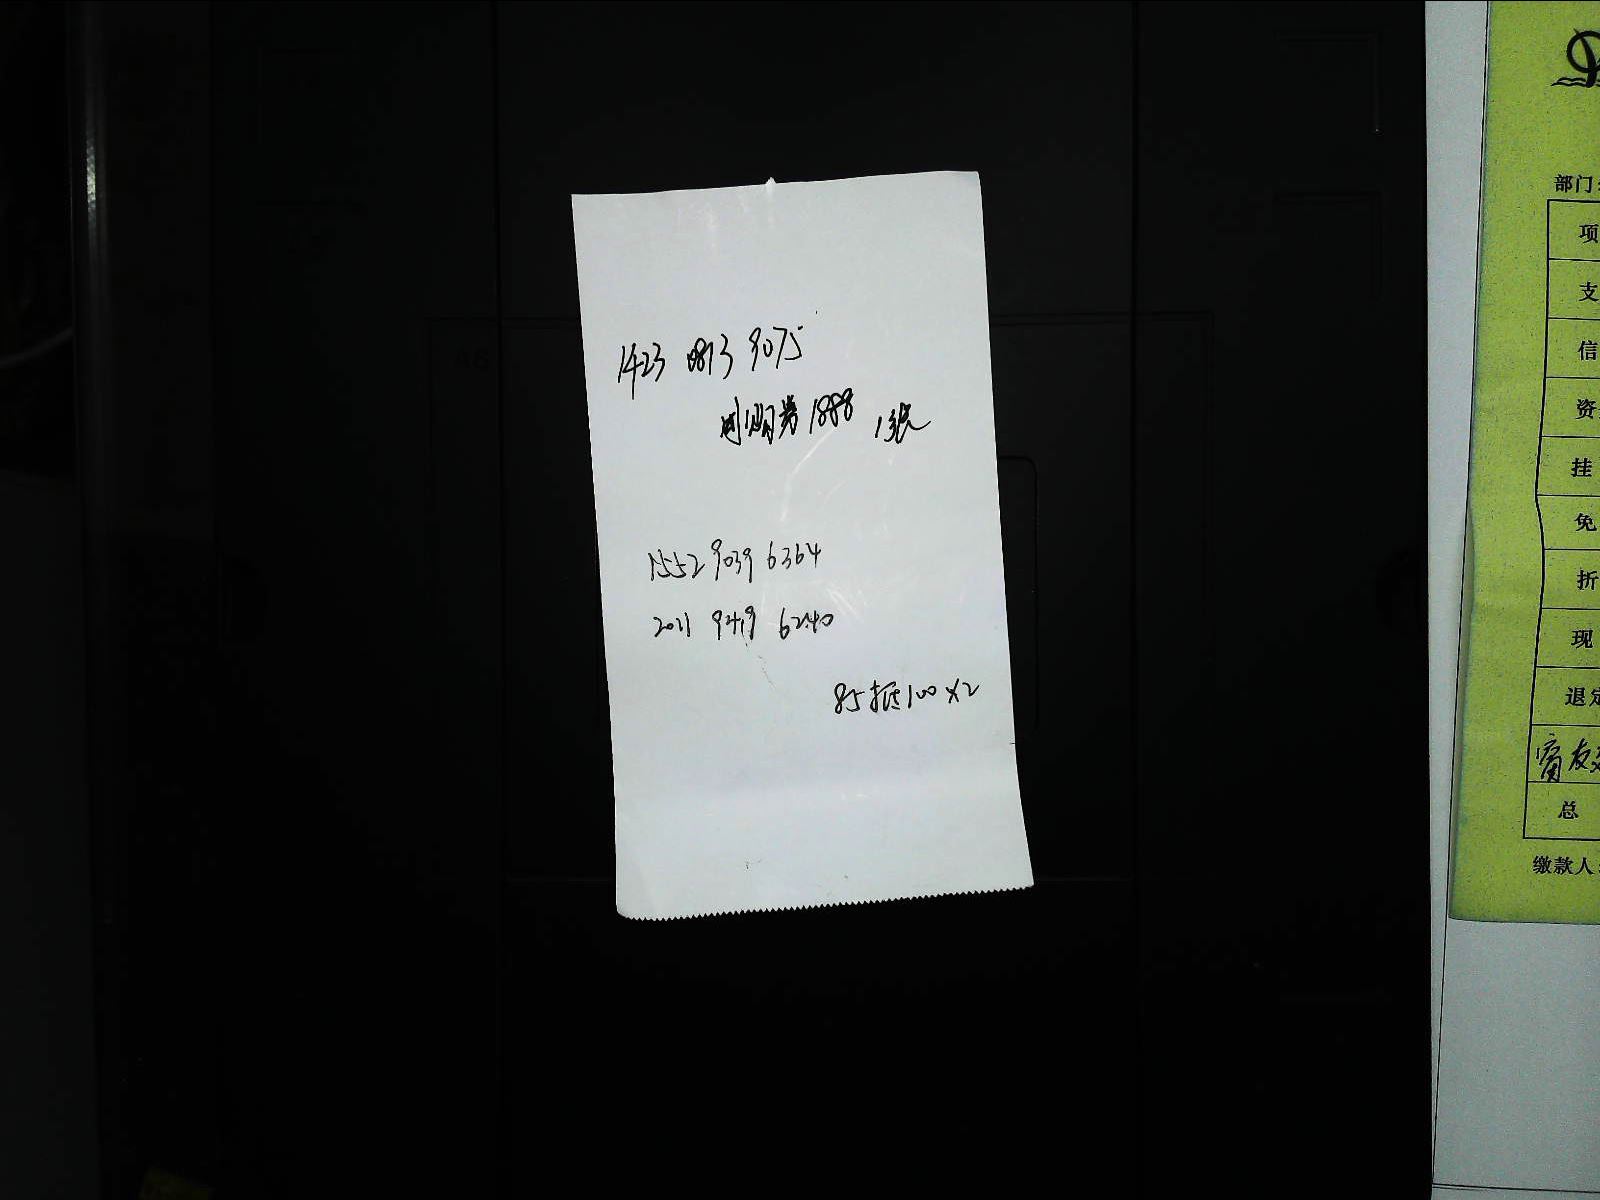 1423 0813 9075
团购券 1888 1张
1552 9039 6364
2021 9419 6240
85抵100 x2
部门:
项
支
信
资
挂
免
折
现
退定
总
缴款人: